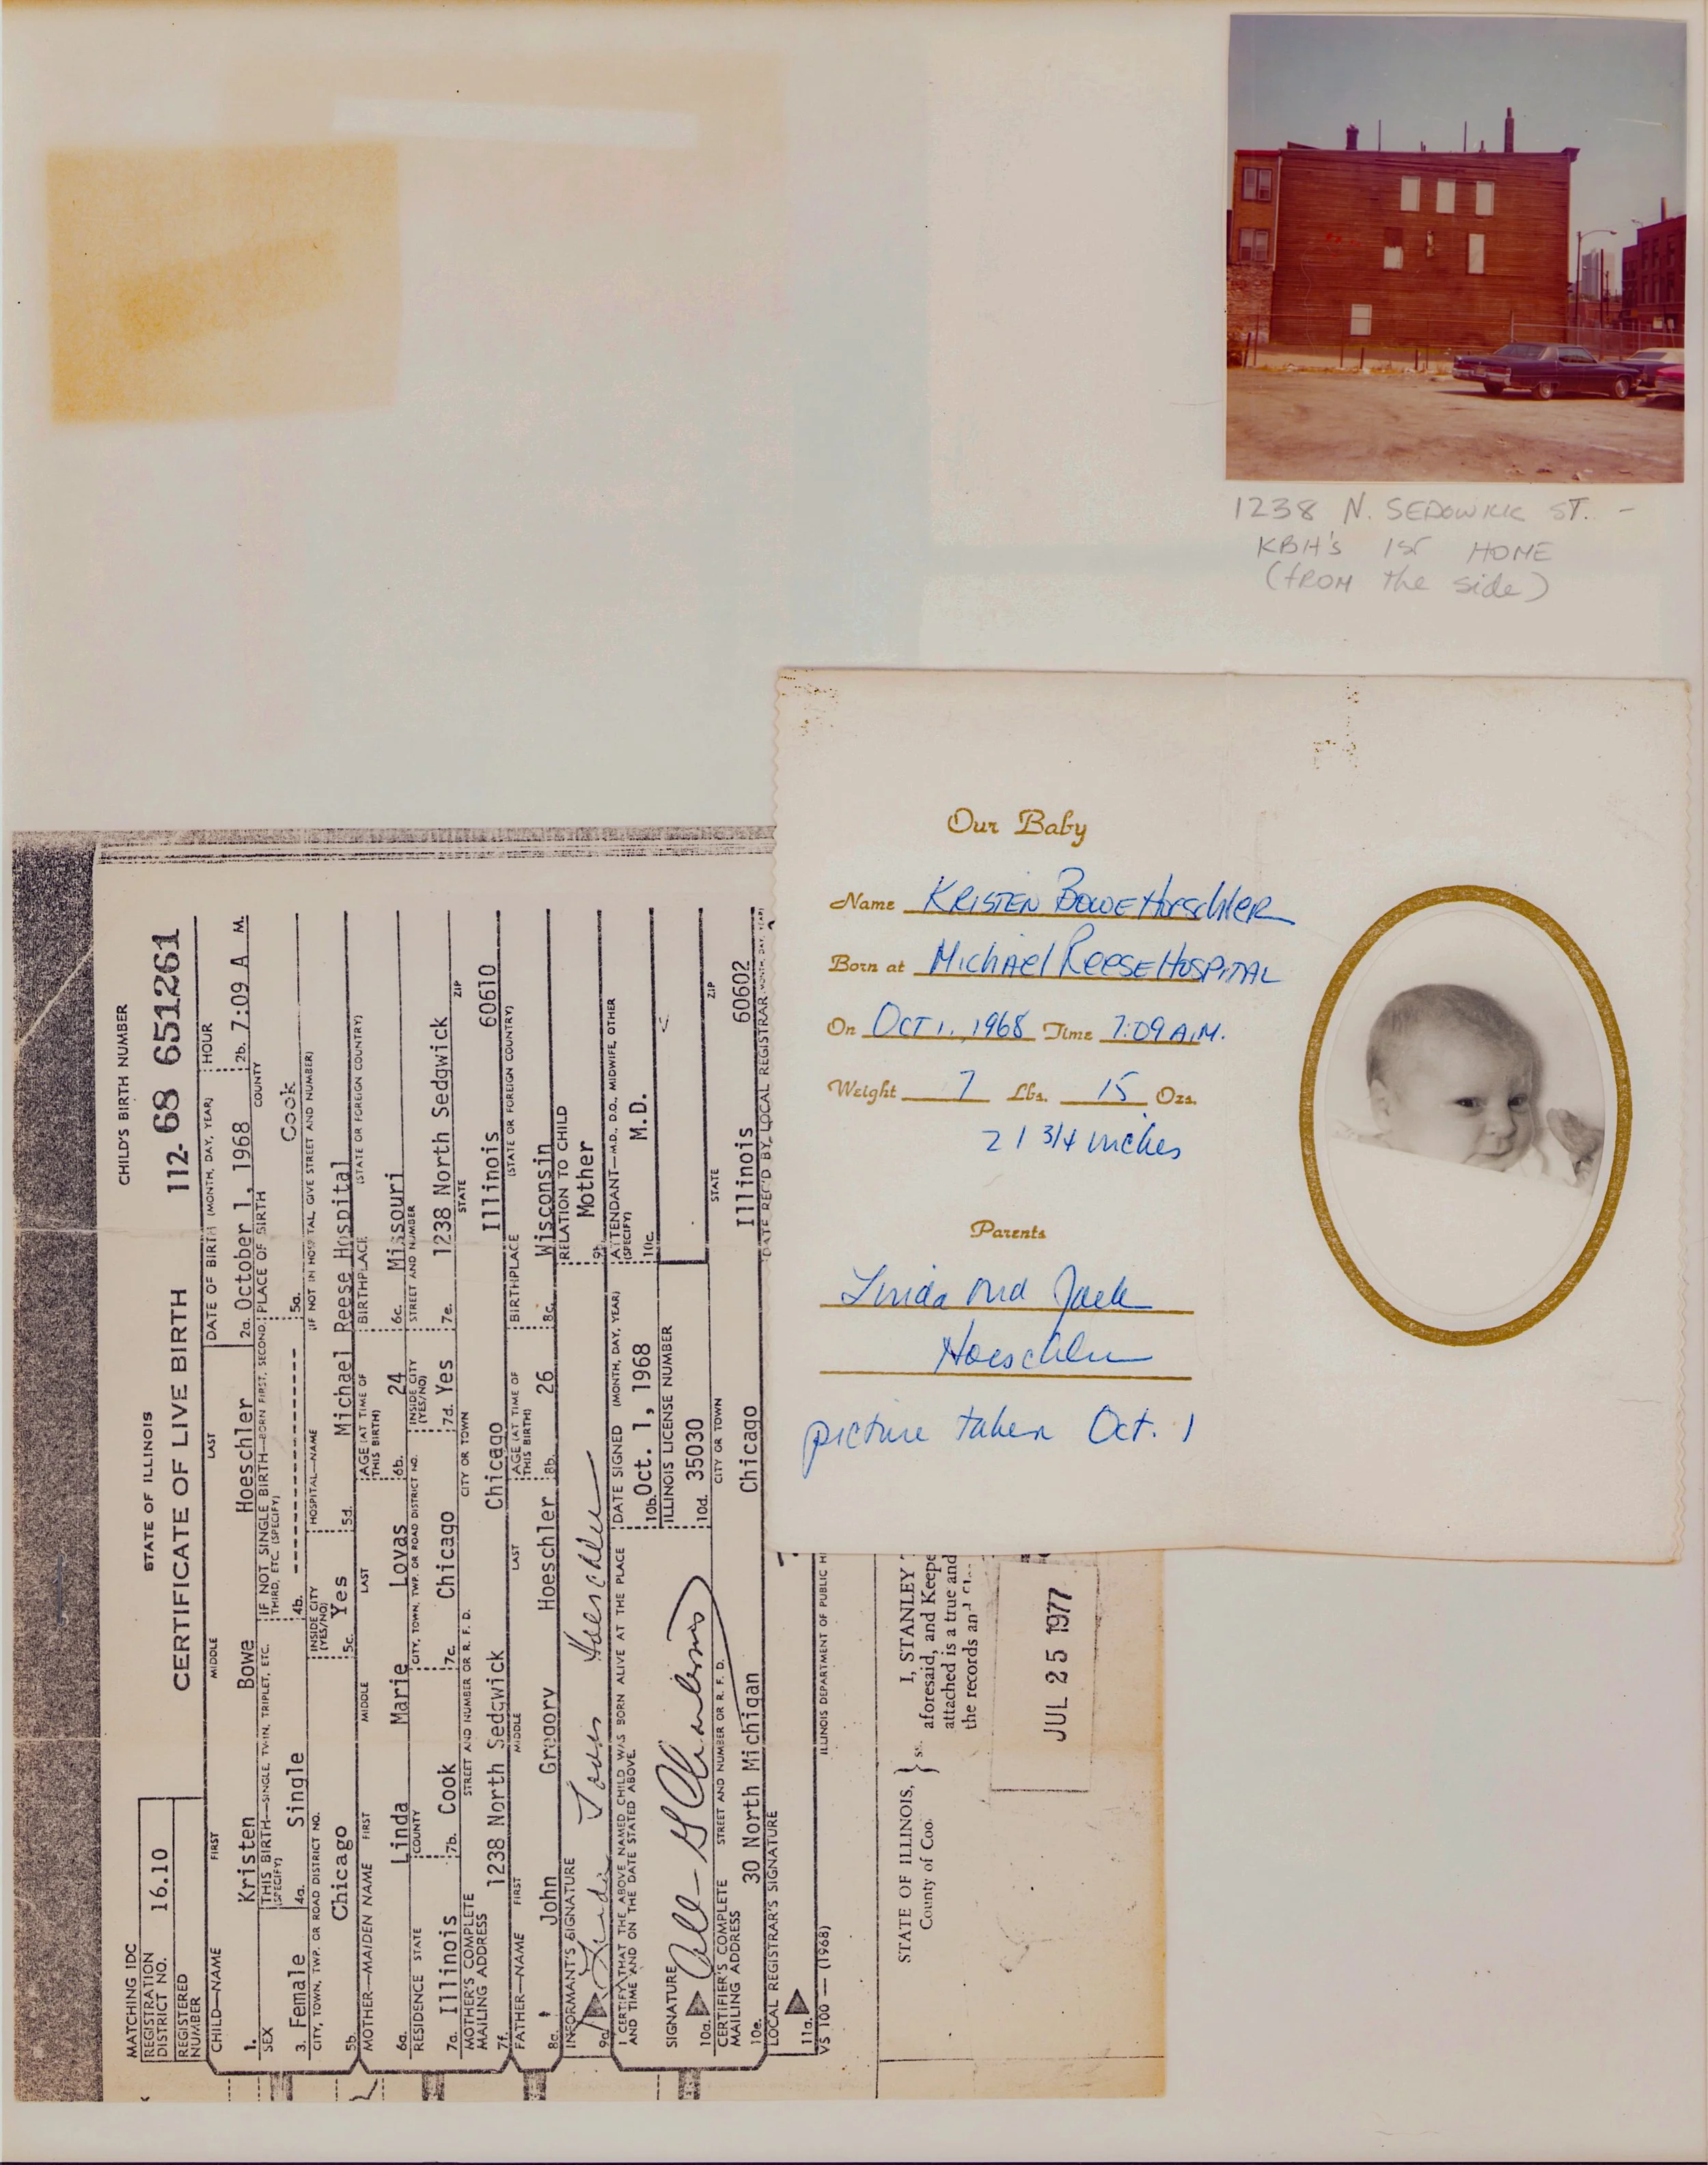 1238 N. SEDGWICK ST. -
KBH's 1st HOME
(from the side)
Our Baby
Name KRISTEN BOWE Hoeschler
Born at Michael Reese Hospital
On Oct 1, 1968 Time 7:09 A.M.
Weight 7 Lbs. 15 Ozs.
21 3/4 inches
Parents
Linda and Jack
Hoeschler
picture taken Oct. 1
STATE OF ILLINOIS
CERTIFICATE OF LIVE BIRTH
CHILD'S BIRTH NUMBER
112- 68 651261
MATCHING IDC
REGISTRATION DISTRICT NO. 16.10
REGISTERED NUMBER
CHILD—NAME FIRST MIDDLE LAST DATE OF BIRTH (MONTH, DAY, YEAR) HOUR
1. Kristen Bowe Hoeschler 2a. October 1, 1968 2b. 7:09 A M.
SEX THIS BIRTH—SINGLE, TWIN, TRIPLET, ETC. (SPECIFY) IF NOT SINGLE BIRTH—BORN FIRST, SECOND, THIRD, ETC. (SPECIFY) PLACE OF BIRTH COUNTY
3. Female 4a. Single 4b. ---------------- 5a. Cook
CITY, TOWN, TWP. OR ROAD DISTRICT NO. INSIDE CITY (YES/NO) HOSPITAL—NAME (IF NOT IN HOSPITAL, GIVE STREET AND NUMBER)
5b. Chicago 5c. Yes 5d. Michael Reese Hospital
MOTHER—MAIDEN NAME FIRST MIDDLE LAST AGE (AT TIME OF THIS BIRTH) BIRTHPLACE (STATE OR FOREIGN COUNTRY)
6a. Linda Marie Lovas 6b. 24 6c. Missouri
RESIDENCE STATE COUNTY CITY, TOWN, TWP. OR ROAD DISTRICT NO. INSIDE CITY (YES/NO) STREET AND NUMBER
7a. Illinois 7b. Cook 7c. Chicago 7d. Yes 7e. 1238 North Sedgwick
MOTHER'S COMPLETE MAILING ADDRESS STREET AND NUMBER OR R. F. D. CITY OR TOWN STATE ZIP
7f. 1238 North Sedgwick Chicago Illinois 60610
FATHER—NAME FIRST MIDDLE LAST AGE (AT TIME OF THIS BIRTH) BIRTHPLACE (STATE OR FOREIGN COUNTRY)
8a. John Gregory Hoeschler 8b. 26 8c. Wisconsin
INFORMANT'S SIGNATURE RELATION TO CHILD
9a. Linda Lovas Hoeschler 9b. Mother
I CERTIFY THAT THE ABOVE NAMED CHILD WAS BORN ALIVE AT THE PLACE AND TIME AND ON THE DATE STATED ABOVE. DATE SIGNED (MONTH, DAY, YEAR) ATTENDANT—M.D., D.O., MIDWIFE, OTHER (SPECIFY)
10b. Oct. 1, 1968 10c. M.D.
SIGNATURE ILLINOIS LICENSE NUMBER
10a. 10d. 35030
CERTIFIER'S COMPLETE MAILING ADDRESS STREET AND NUMBER OR R. F. D. CITY OR TOWN STATE ZIP
10e. 30 North Michigan Chicago Illinois 60602
LOCAL REGISTRAR'S SIGNATURE DATE REC'D BY LOCAL REGISTRAR (MONTH, DAY, YEAR)
11a.
VS 100 — (1968) ILLINOIS DEPARTMENT OF PUBLIC H
STATE OF ILLINOIS, } ss.
County of Coo
I, STANLEY T
aforesaid, and Keepe
attached is a true and
the records and
JUL 25 1977